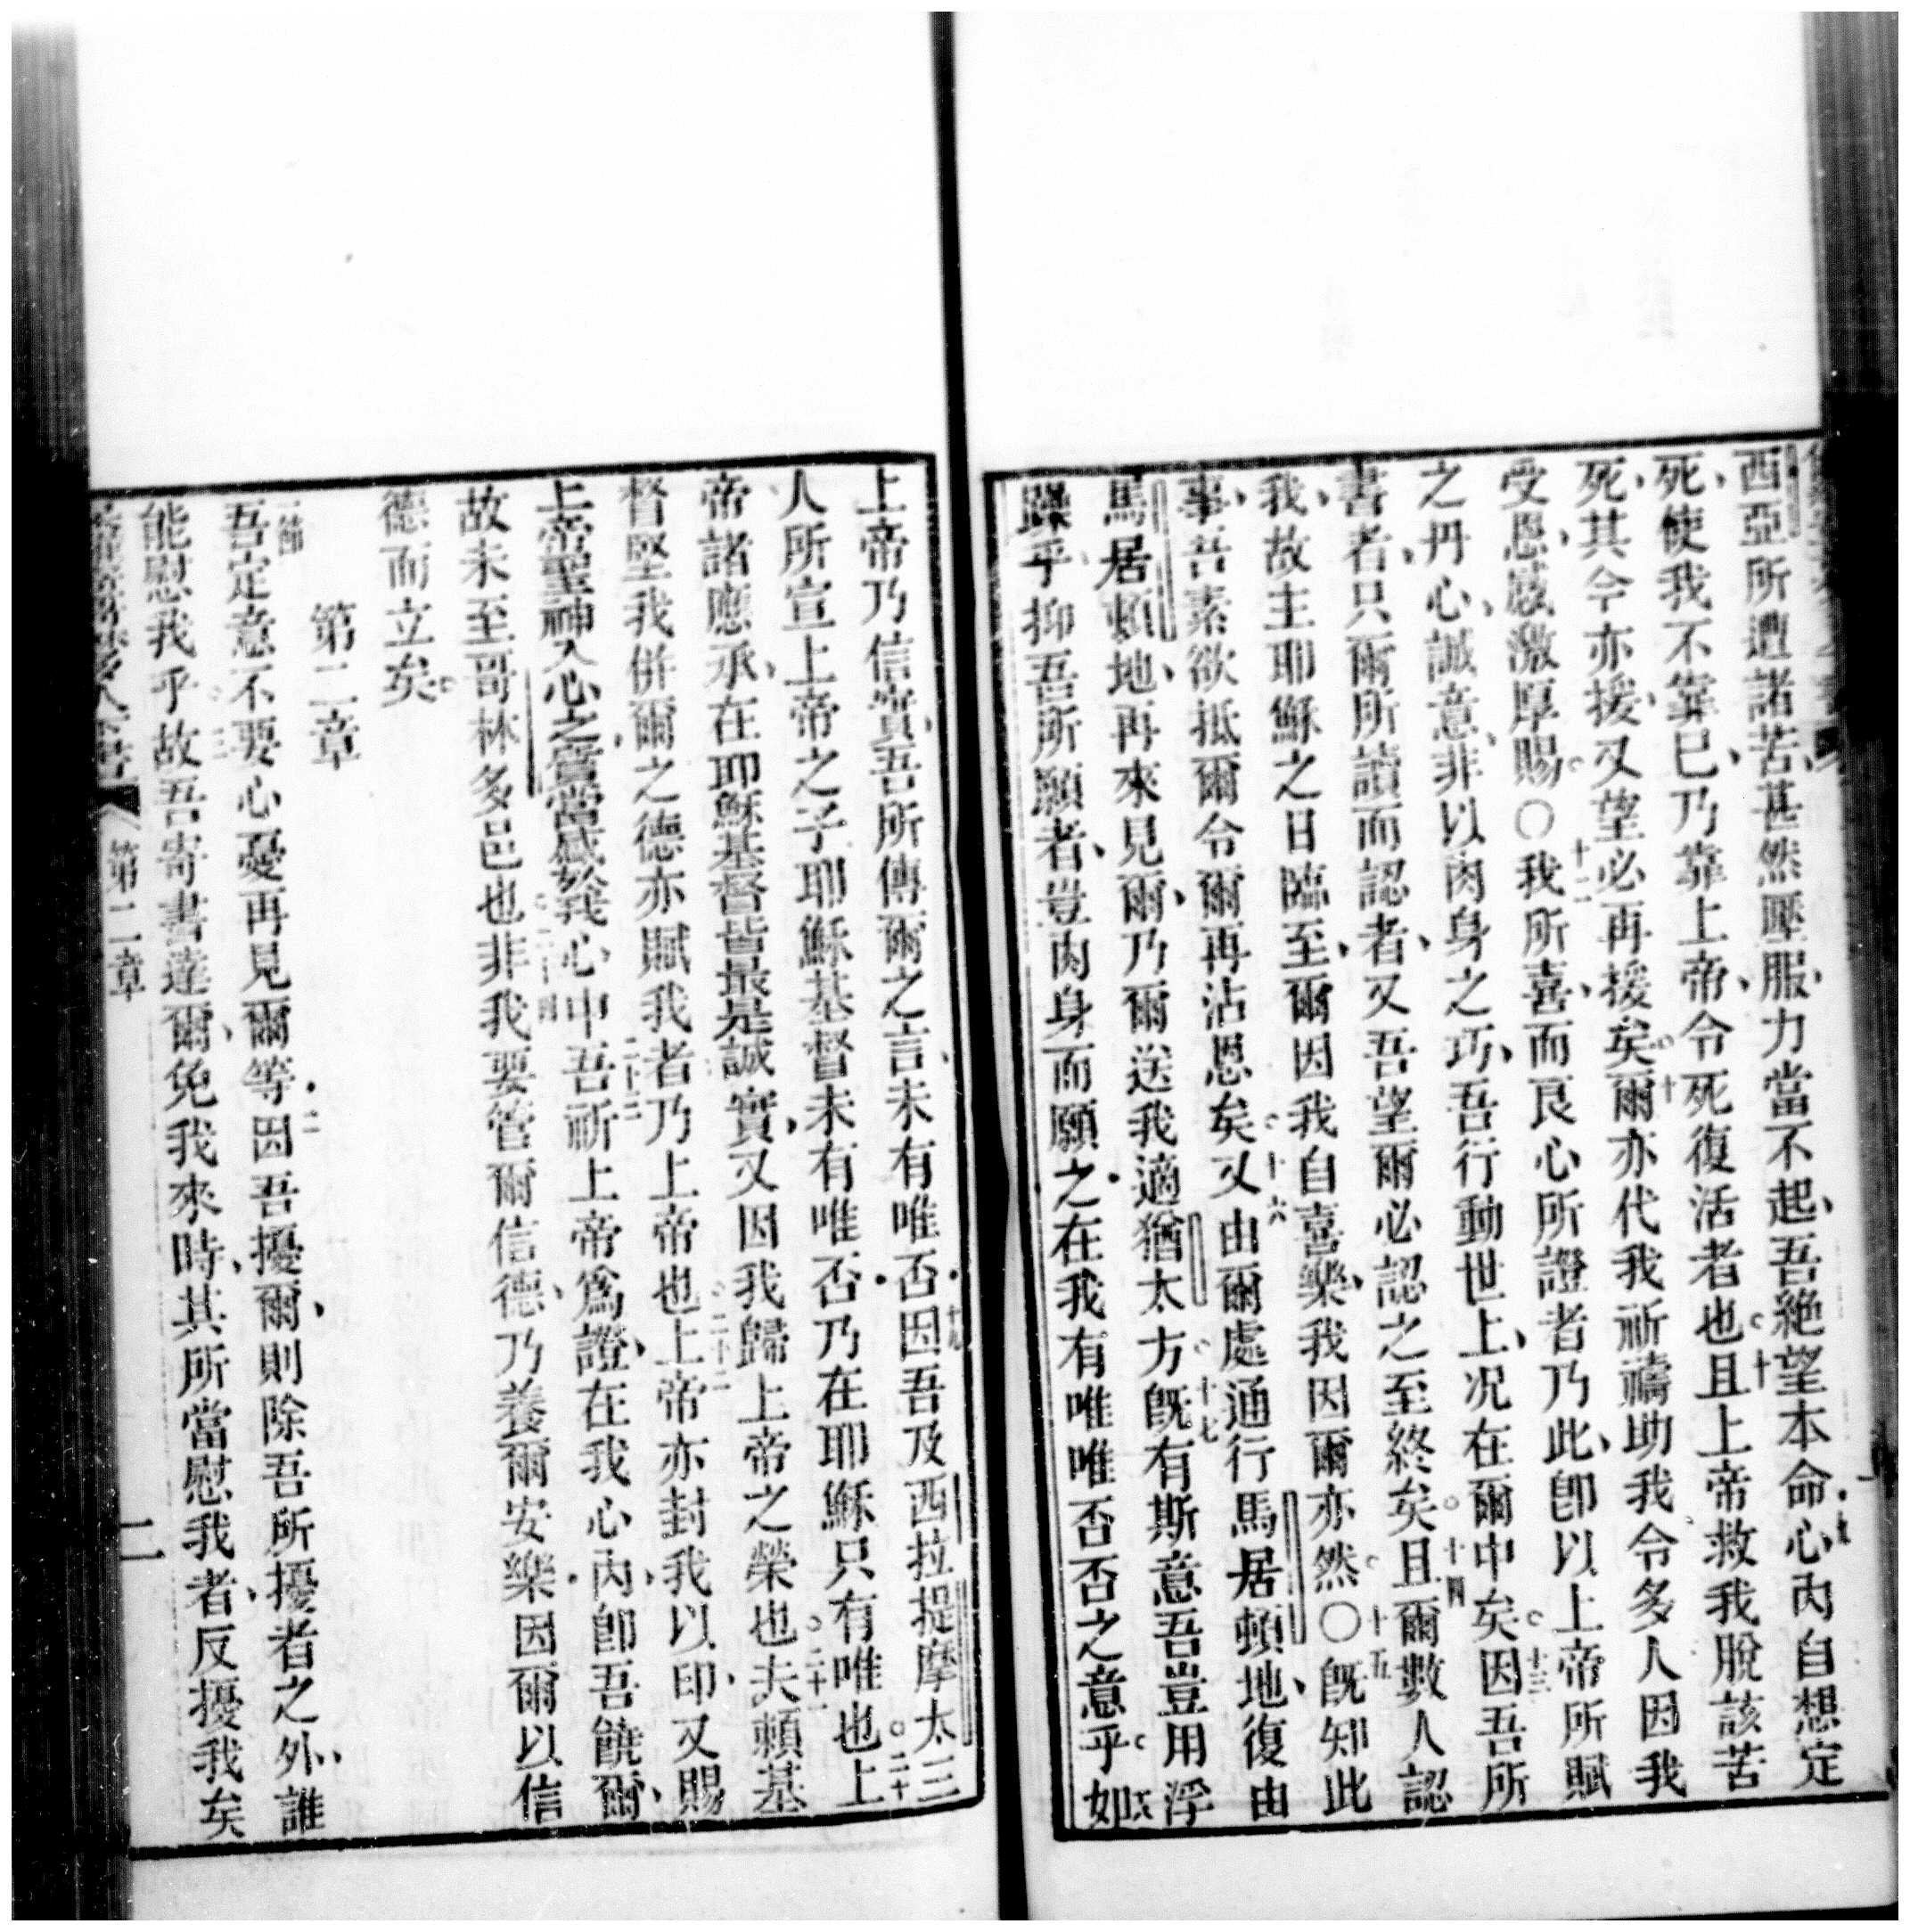 西亞所遭諸苦甚然壓服力當不起吾絶望本命心內自想定
死使我不靠己乃靠上帝令死復活者也且上帝救我脫該苦
死其今亦援又望必再援矣爾亦代我祈禱助我令多人因我
受恩感激厚賜〇我所喜而良心所證者乃此卽以上帝所賦
之丹心誠意非以肉身之巧吾行動世上况在爾中矣因吾所
書者只爾所讀而認者又吾望爾必認之至終矣且爾數人認
我故主耶穌之日臨至爾因我自喜樂我因爾亦然〇旣知此
事吾素欲抵爾令爾再沾恩矣又由爾處通行馬居頼地復由
馬居頼地再來見爾乃爾送我適猶太方旣有斯意吾豈用浮
躁乎抑吾所願者豈肉身而願之在我有唯唯否否之意乎如
上帝乃信實吾所傳爾之言未有唯否因吾及西拉提摩太三
人所宣上帝之子耶穌基督未有唯否乃在耶穌只有唯也上
帝諸應承在耶穌基督皆最是誠實又因我歸上帝之榮也夫頼基
督堅我併爾之德亦賦我者乃上帝也上帝亦封我以印又賜
上帝聖神入心之實當感於我心中吾祈上帝爲證在我心內卽吾饒爾
故未至哥林多邑也非我要管爾信德乃養爾安樂因爾以信
德而立矣
第二章
吾定意不要心憂再見爾等因吾擾爾則除吾所擾者之外誰
能慰我乎故吾寄書達爾免我來時其所當慰我者反擾我矣
第二章
二